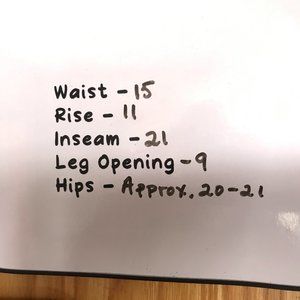 Waist - 15
Rise - 11
Inseam - 21
Leg Opening - 9
Hips - Approx. 20-21